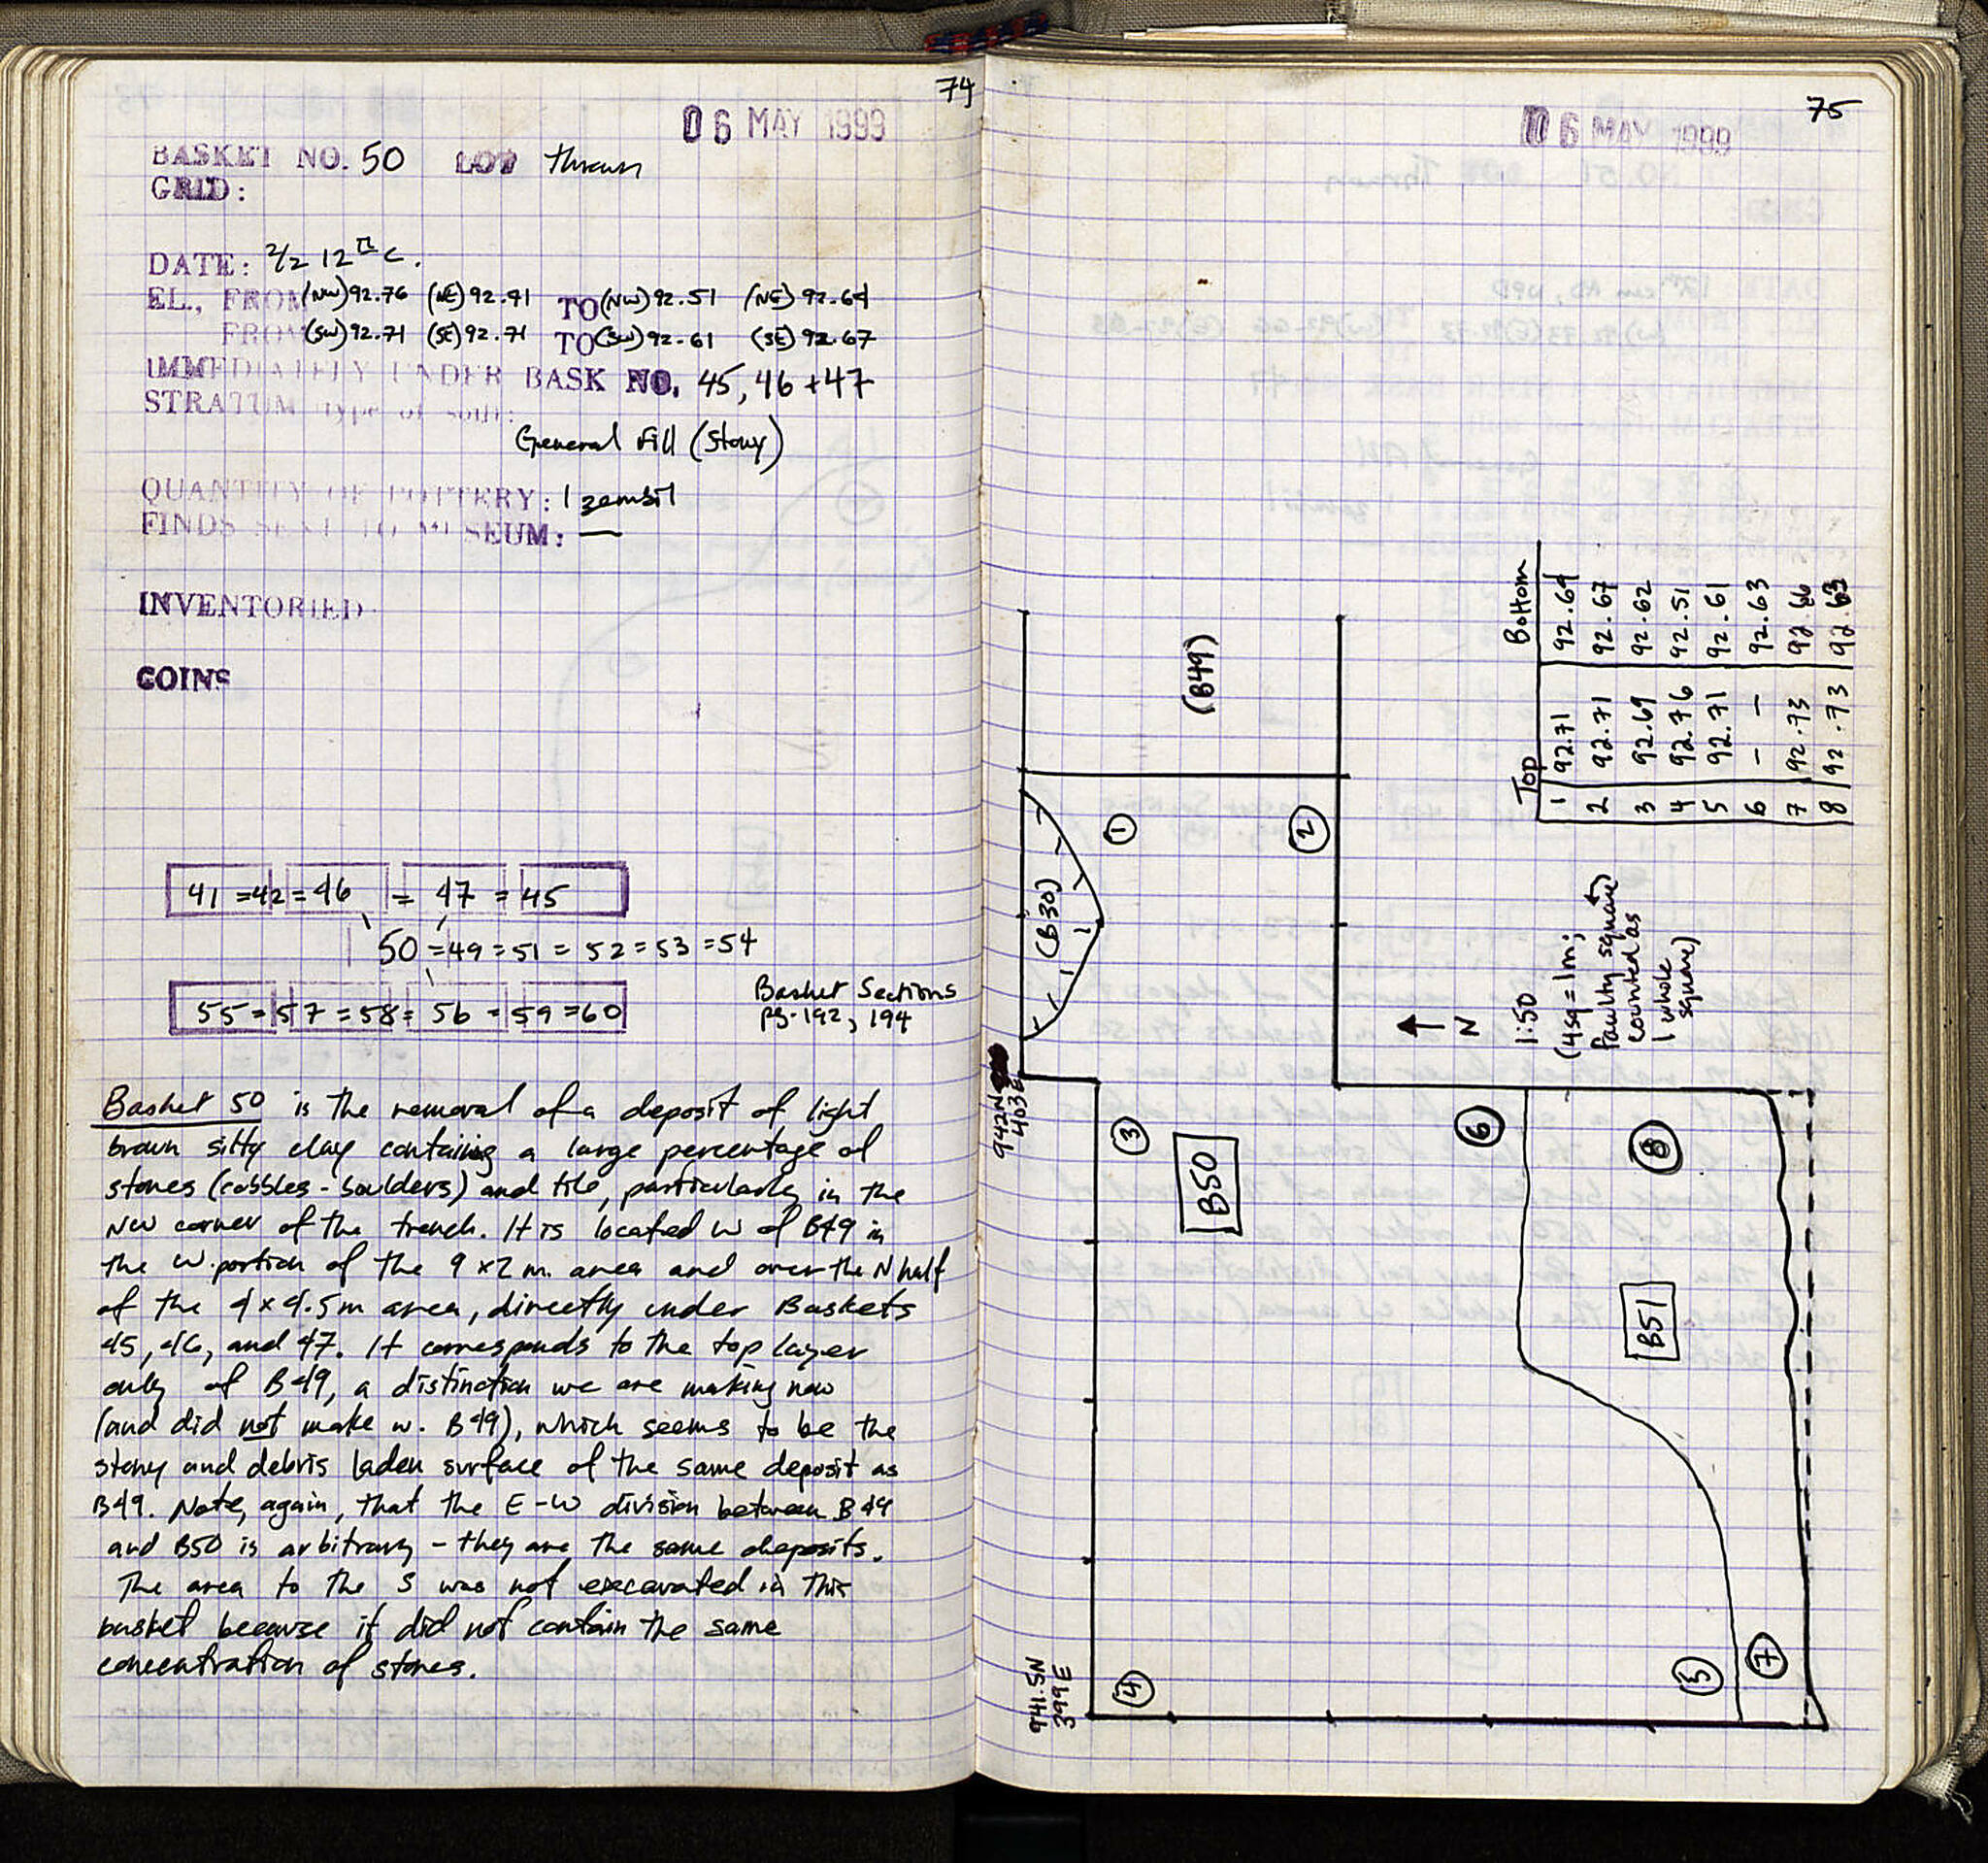 74
06 MAY 1999
BASKET NO. 50 LOT thrown
GRID:
DATE: 2/2 12th c.
EL., FROM (NW) 92.76 (NE) 92.71 TO (NW) 92.51 (NE) 92.64
FROM (SW) 92.71 (SE) 92.71 TO (SW) 92.61 (SE) 92.67
IMMEDIATELY UNDER BASK NO. 45, 46 + 47
STRATUM (type of soil):
General Fill (Stony)
QUANTITY OF POTTERY: 1 zembil
FINDS SENT TO MUSEUM: —
INVENTORIED
COINS
41 = 42 = 46 = 47 = 45
50 = 49 = 51 = 52 = 53 = 54
55 = 57 = 58 = 56 = 59 = 60
Basket Sections
pg. 192, 194
Basket 50 is the removal of a deposit of light
brown silty clay containing a large percentage of
stones (cobbles - boulders) and tile, particularly in the
NW corner of the trench. It is located W of B49 in
the W. portion of the 9 x 2 m. area and over the N half
of the 4 x 4.5 m area, directly under Baskets
45, 46, and 47. It corresponds to the top layer
only of B49, a distinction we are making now
(and did not make w. B49), which seems to be the
stony and debris laden surface of the same deposit as
B49. Note, again, that the E-W division between B49
and B50 is arbitrary - they are the same deposits.
The area to the S was not excavated in this
basket because it did not contain the same
concentration of stones.
75
06 MAY 1999
Top Bottom
1 92.71 92.64
2 92.71 92.67
3 92.69 92.62
4 92.76 92.51
5 92.71 92.61
6 - - 92.63
7 92.73 92.66
8 92.73 92.63
(B49)
(B30)
1
2
N
1:50
(4sq = 1m;
faulty square
counted as
1 whole
square)
942N
403E
3
B50
6
8
B51
4
5
7
941.5N
399E